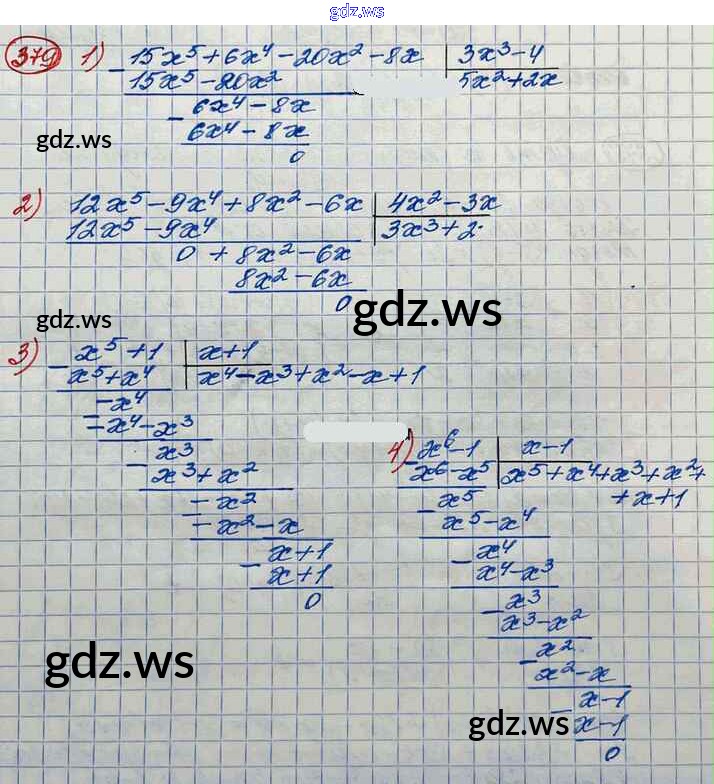 gdz.ws
379 1) - 15x⁵ + 6x⁴ - 20x² - 8x | 3x³ - 4
15x⁵ - 20x² | 5x² + 2x
- 6x⁴ - 8x
6x⁴ - 8x
0
gdz.ws
2) 12x⁵ - 9x⁴ + 8x² - 6x | 4x² - 3x
12x⁵ - 9x⁴ | 3x³ + 2.
0 + 8x² - 6x
8x² - 6x
0
gdz.ws
gdz.ws
3) - x⁵ + 1 | x + 1
x⁵ + x⁴ | x⁴ - x³ + x² - x + 1
- x⁴
- x⁴ - x³
x³
- x³ + x²
- x²
- x² - x
- x + 1
x + 1
0
4) - x⁶ - 1 | x - 1
x⁶ - x⁵ | x⁵ + x⁴ + x³ + x² +
+ x + 1
- x⁵
x⁵ - x⁴
- x⁴
x⁴ - x³
- x³
x³ - x²
- x²
x² - x
- x - 1
x - 1
0
gdz.ws
gdz.ws